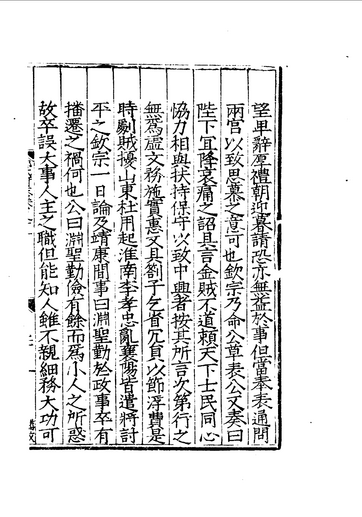 望卑辭厚禮朝迎暮請恐亦無益於事但當奉表通問
兩宫以致思慕之意可也欽宗乃命公草表公又奏曰
陛下宜降哀痛之詔具言金賊不道頼天下士民同心
恊力相與扶持保守以致中興者按其所言次第行之
無為虚文務施實惠又具劄子乞省冗員以節浮費是
時剿賊擾山東杜用起淮南李孝忠亂襄陽皆遣將討
平之欽宗一日論及靖康間事曰淵聖勤於政事卒有
播遷之禍何也公曰淵聖勤儉有餘而為小人之所惑
故卒誤大事人主之職但能知人雖不親細務大功可